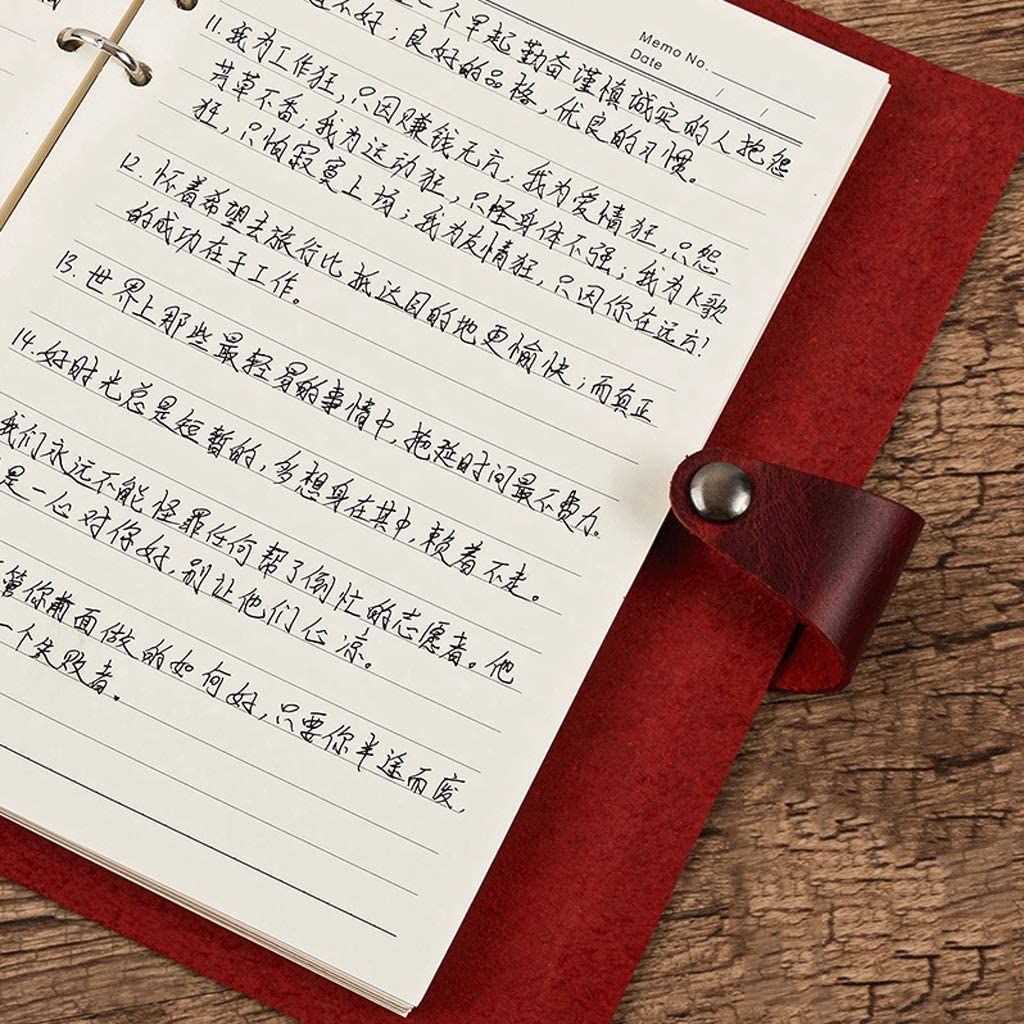 Memo No.
Date / /
一个早起勤奋谨慎诚实的人抱怨
不好；良好的品格，优良的习惯。
11.我为工作狂，只因赚钱无方；我为爱情狂，只怨
芳草不香；我为运动狂，只怪身体不强；我为K歌
狂，只怕寂寞上场；我为友情狂，只因你在远方！
12.怀着希望去旅行比抵达目的地更愉快；而真正
的成功在于工作。
13.世界上那些最轻易的事情中，拖延时间最不费力。
14.好时光总是短暂的，多想身在其中，赖着不走。
我们永远不能怪罪任何帮了倒忙的志愿者。他
是一心对你好，别让他们心凉。
管你前面做的如何好，只要你半途而废，
一个失败者。